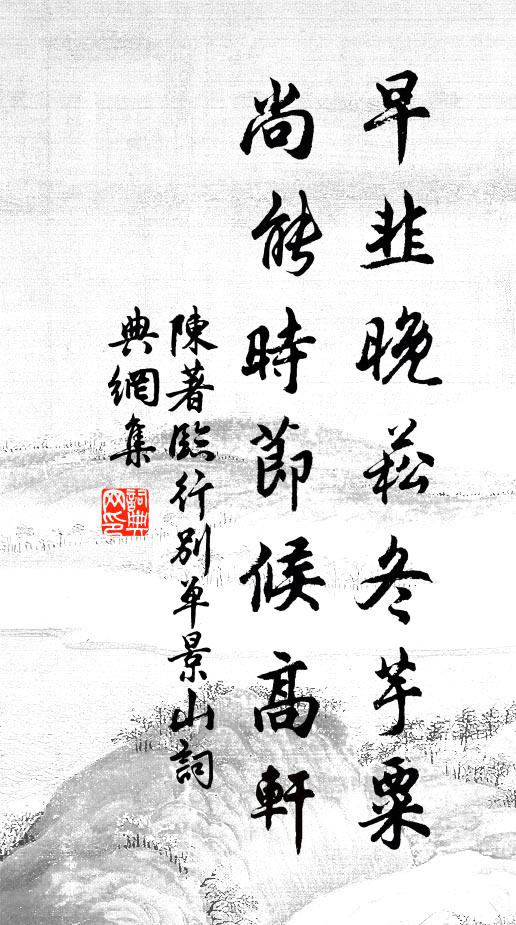 早韭晚菘冬芋粟
尚能時節候高軒
陳著臨行別單景山詞
典網集
詞典
网印